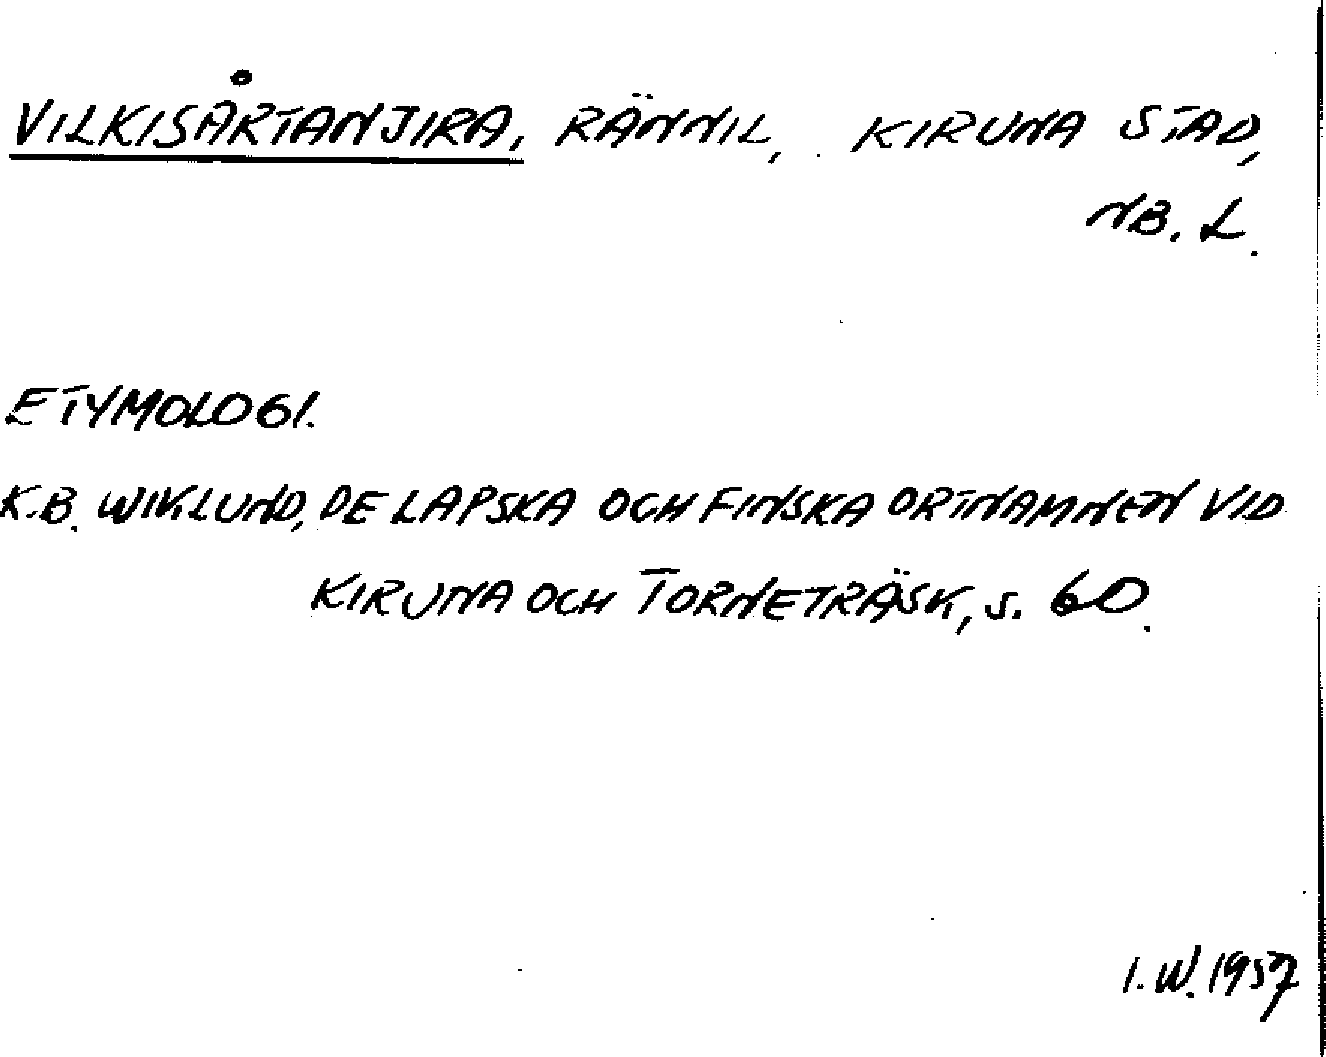 VILKISÅRTANJIRA, RÄNNIL, KIRUNA STAD,
NB. L.
ETYMOLOGI.
K.B. WIKLUND, DE LAPSKA OCH FINSKA ORTNAMNEN VID
KIRUNA OCH TORNETRÄSK, S. 60.
I. W. 1957